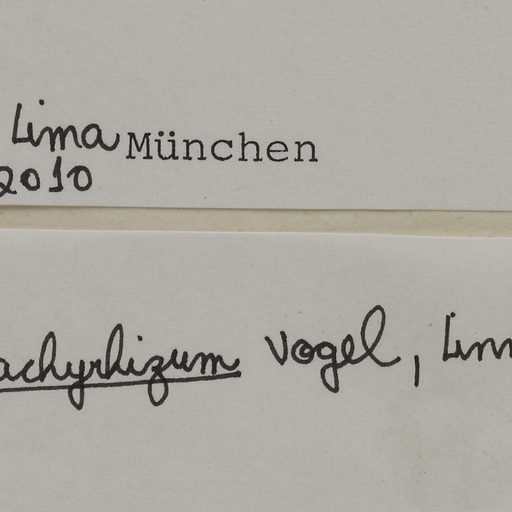 Lima München
2010
achyrhizum Vogel, Linn